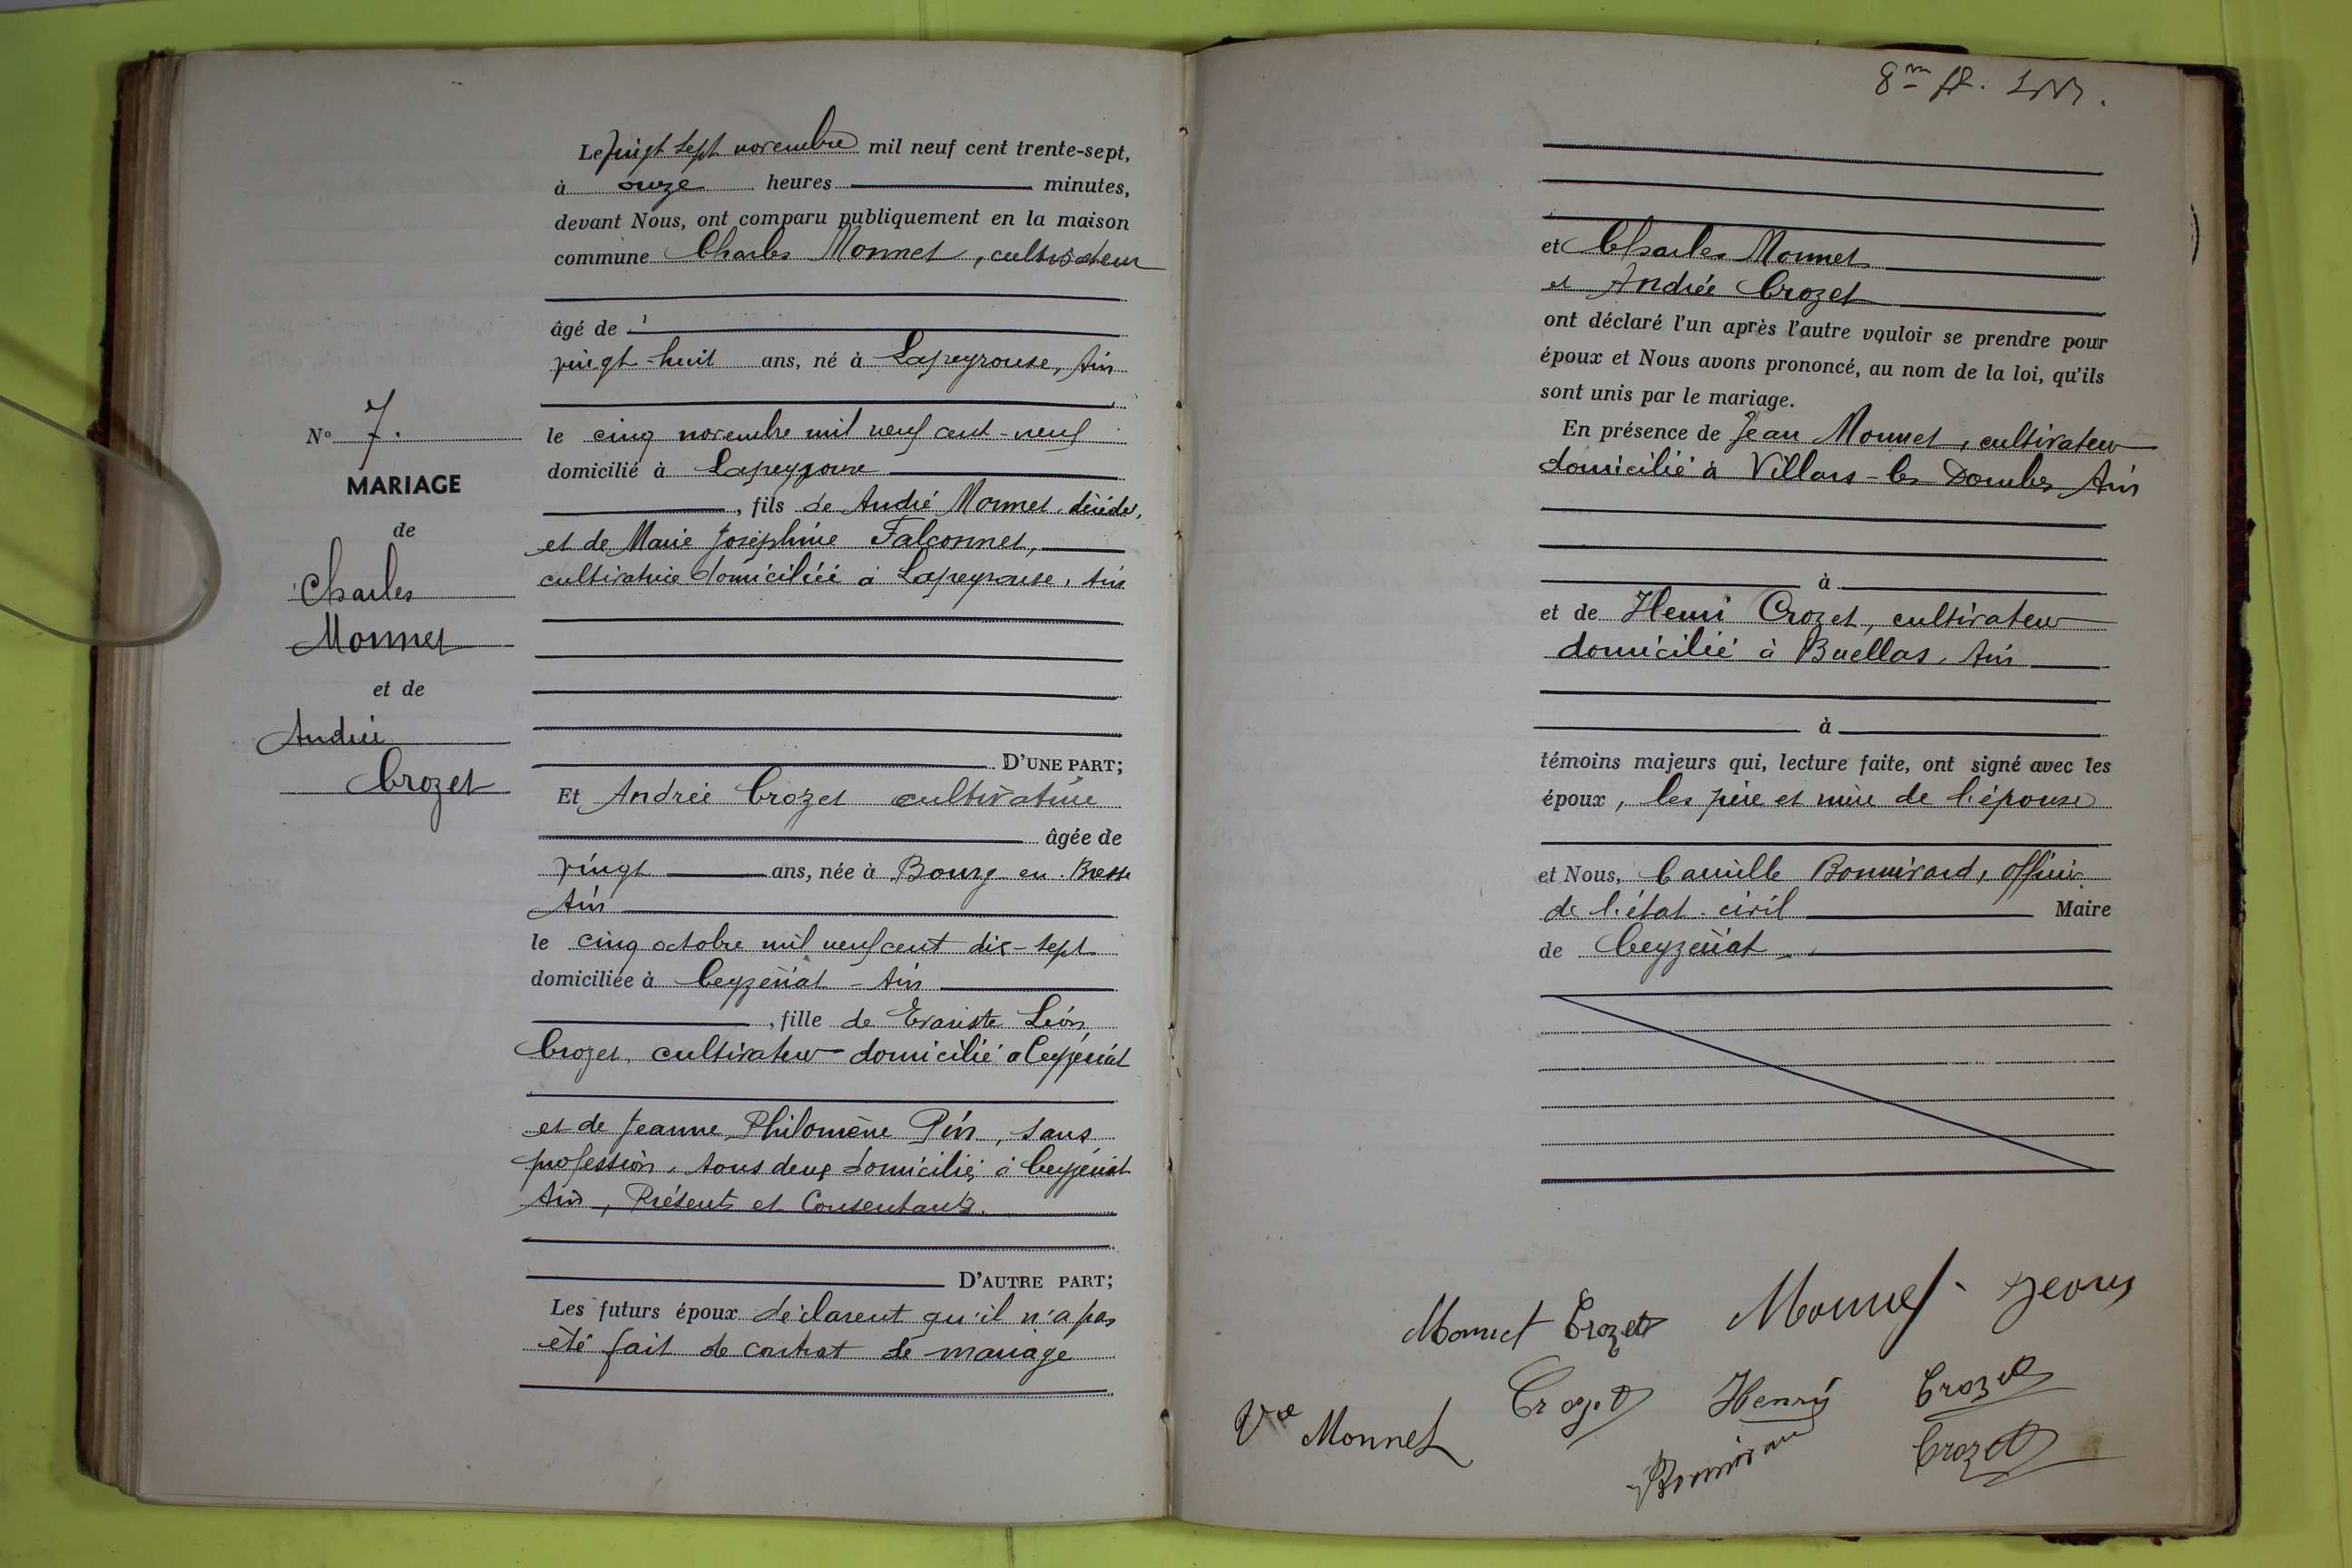 N° 7.
MARIAGE
de
Charles
Monnet
et de
Andrée
Crozet
Le vingt sept novembre mil neuf cent trente-sept,
à onze heures minutes,
devant Nous, ont comparu publiquement en la maison
commune Charles Monnet, cultivateur
âgé de
vingt-huit ans, né à Lapeyrouse, Ain
le cinq novembre mil neuf cent-neuf
domicilié à Lapeyrouse
, fils de André Monnet, décédé,
et de Marie Joséphine Falconnet,
cultivatrice domiciliée à Lapeyrouse, Ain
D'UNE PART;
Et Andrée Crozet cultivatrice
âgée de
vingt ans, née à Bourg en Bresse
Ain
le cinq octobre mil neuf cent dix-sept
domiciliée à Ceyzériat - Ain
, fille de Evariste Léon
Crozet, cultivateur domicilié à Ceyzériat
et de Jeanne Philomène Pin, sans
profession, tous deux domiciliés à Ceyzériat
Ain, Présents et Consentants.
D'AUTRE PART;
Les futurs époux déclarent qu'il n'a pas
été fait de contrat de mariage
et Charles Monnet
et Andrée Crozet
ont déclaré l'un après l'autre vouloir se prendre pour
époux et Nous avons prononcé, au nom de la loi, qu'ils
sont unis par le mariage.
En présence de Jean Monnet, cultivateur
domicilié à Villars-les Dombes Ain
à
et de Henri Crozet, cultivateur
domicilié à Buellas, Ain
à
témoins majeurs qui, lecture faite, ont signé avec les
époux, les père et mère de l'épouse
et Nous, Camille Bonnivard, officier
de l'état-civil Maire
de Ceyzériat
Monnet Crozet Monnet Jean
Crozet Henry Crozet
Vve Monnet Bonnivard Crozet